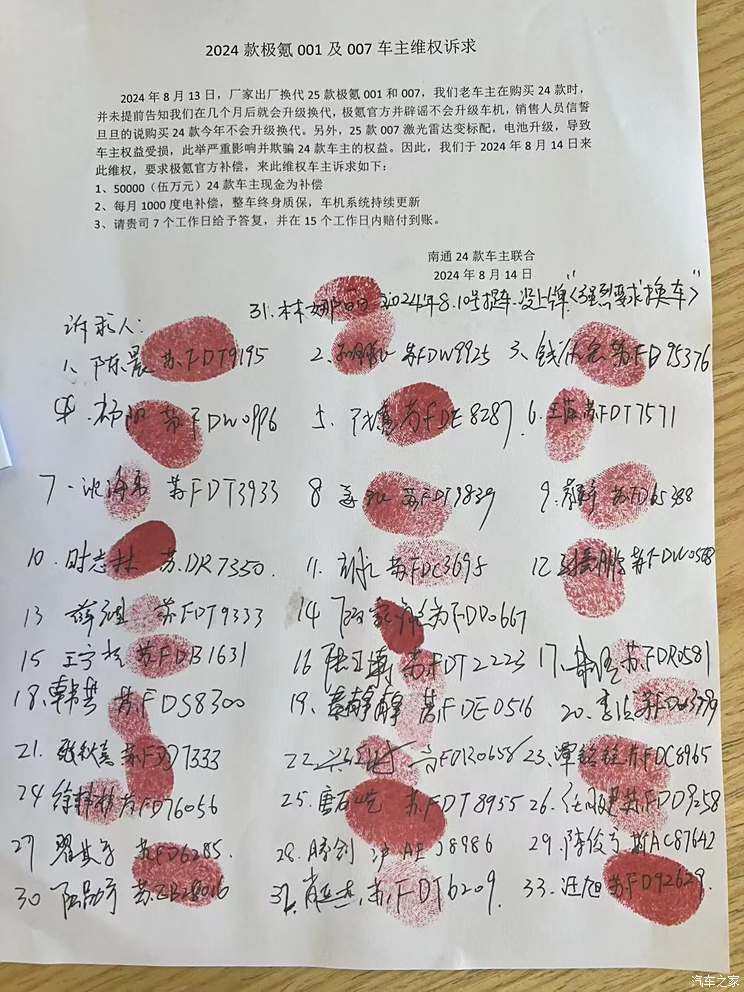 2024 款极氪 001 及 007 车主维权诉求
2024 年 8 月 13 日，厂家出厂换代 25 款极氪 001 和 007，我们老车主在购买 24 款时，
并未提前告知我们在几个月后就会升级换代，极氪官方并辟谣不会升级车机，销售人员信誓
旦旦的说购买 24 款今年不会升级换代。另外，25 款 007 激光雷达变标配，电池升级，导致
车主权益受损，此举严重影响并欺骗 24 款车主的权益。因此，我们于 2024 年 8 月 14 日来
此维权，要求极氪官方补偿，来此维权车主诉求如下：
1、50000（伍万元）24 款车主现金为补偿
2、每月 1000 度电补偿，整车终身质保，车机系统持续更新
3、请贵司 7 个工作日给予答复，并在 15 个工作日内赔付到账。
南通 24 款车主联合
2024 年 8 月 14 日
31. 林娜 2024年8.10号提车.没上牌"《强烈要求换车》"
诉求人:
1、陈晨 苏FDT9195 2、苏FDW9925 3、钱 苏FD95376
4. 杨阳 苏FDW0996 5、苏FDE8287 6、王 苏FDT7571
7、沈海 苏FDT3933 8 姜 苏FDT9839 9、苏FD65388
10、时志林 苏.DR7350. 11、苏FDC3695 12 鹏 苏FDW0568
13 薛 苏FDT9333 14 苏FDD0667
15 王宇 苏FDB1631 16 陆 苏FDT2223 17、苏FDR0581
18、韩 苏FDS8300 19、秦静静 苏FDE0516 20、李
21、张秋 苏FDD1333 22、FDR0658 23、谭 苏FDC8965
24 徐 苏FD76056 25、唐 苏FDT8955 26、任 苏FDD9258
27 翟 苏FD6285. 28、滕剑 沪AE J8986 29、陈俊 AC87642
30 陆 32、肖 苏FDT6209. 33、汪旭 苏FD92629.
汽车之家